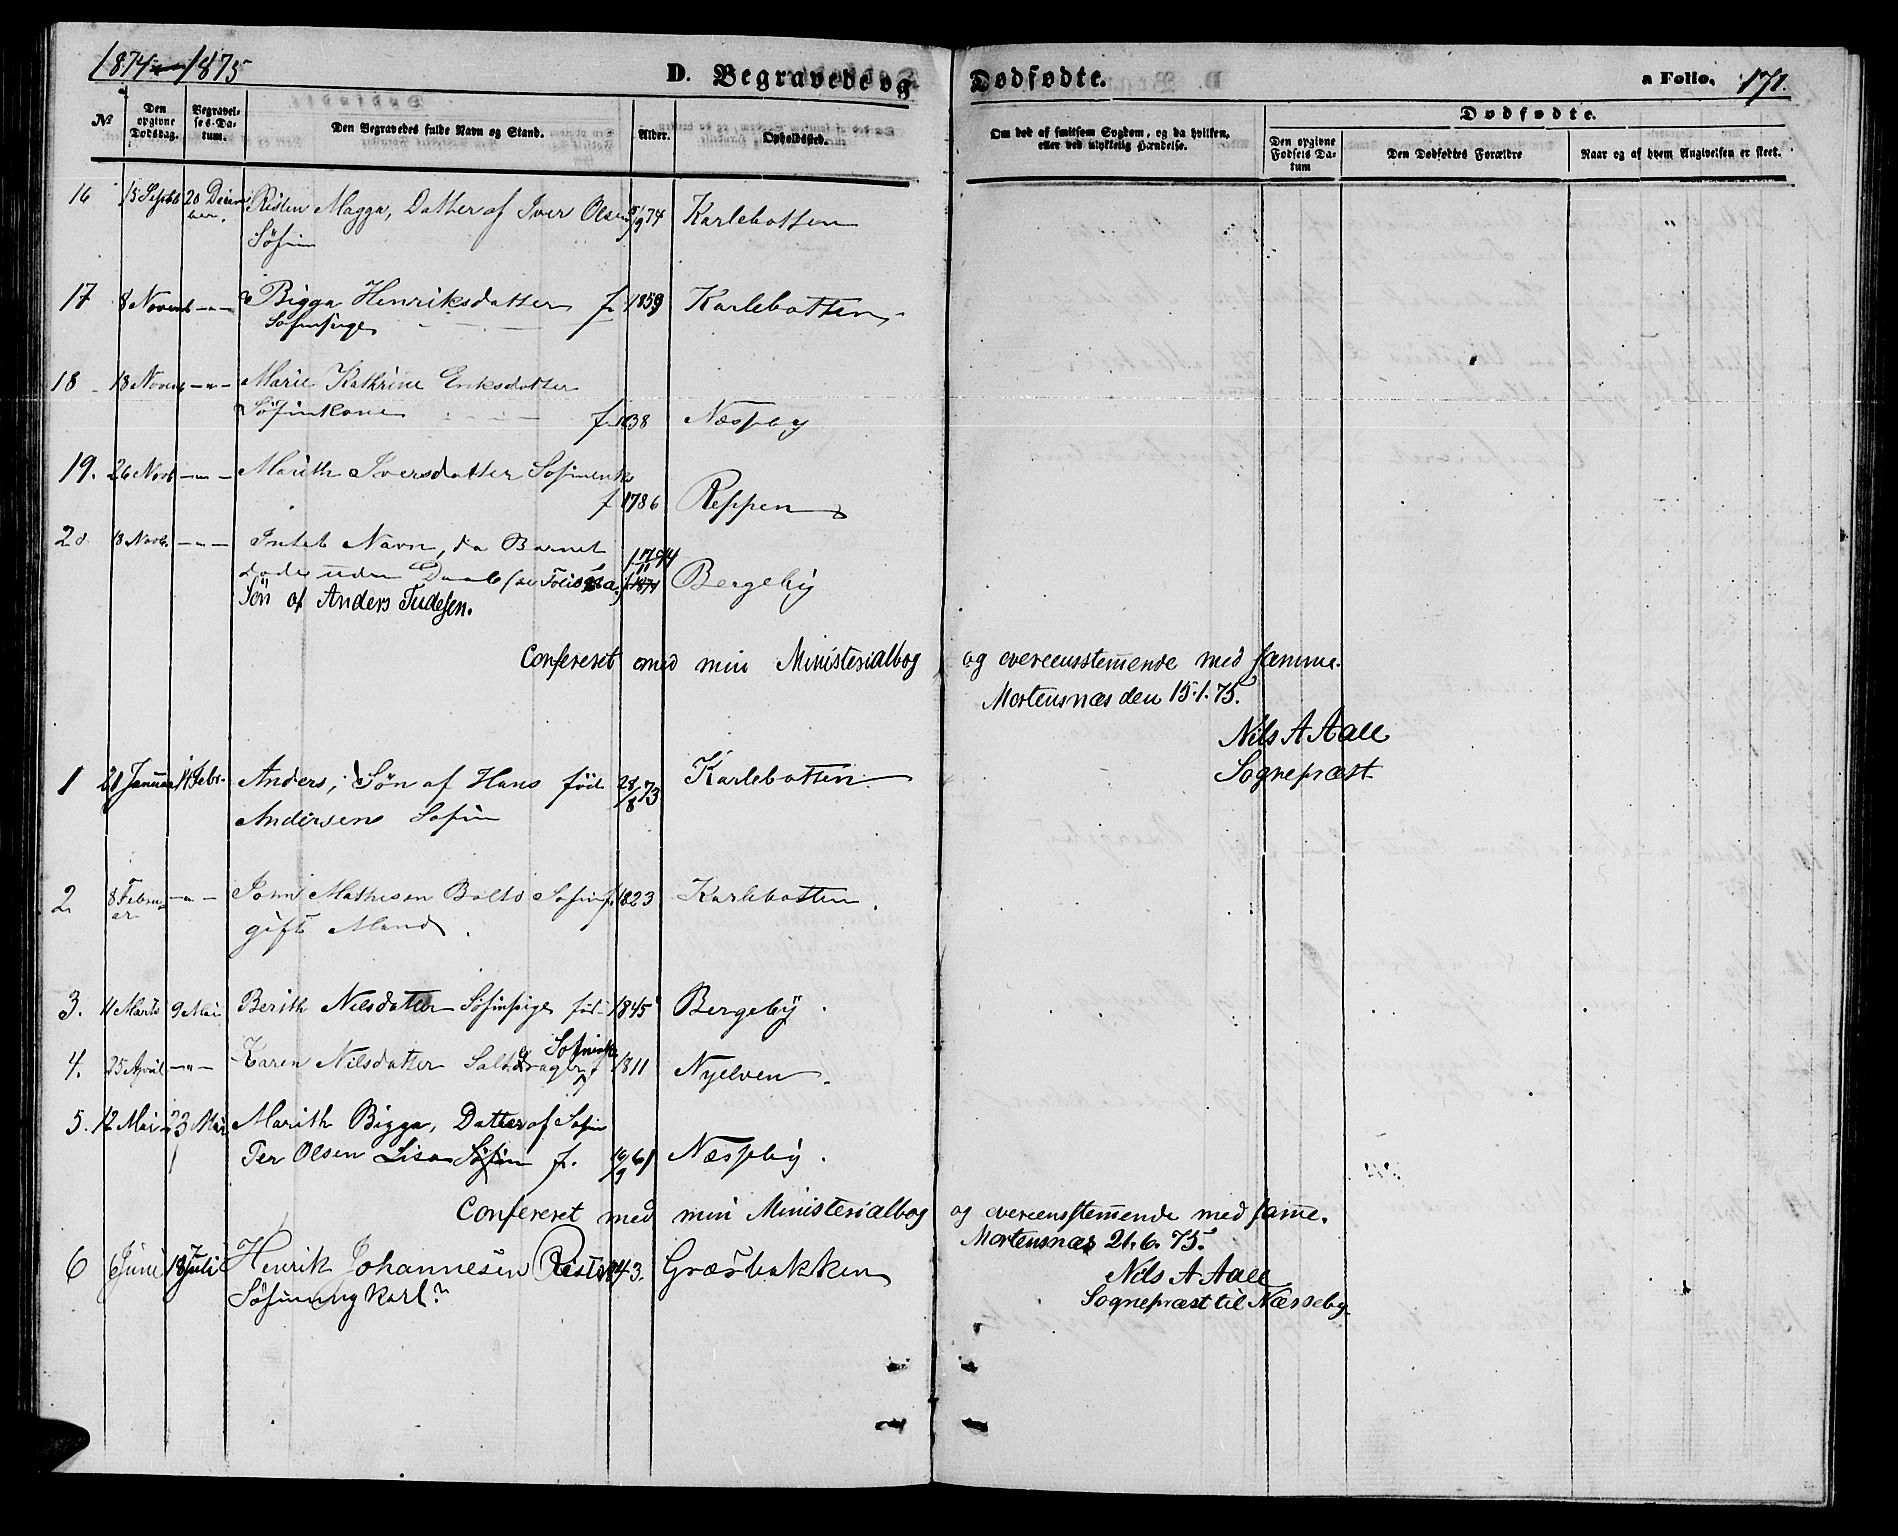 1874 — 1875
D. Begravede og Dødfødte.
a Folio. 171.
№
Den opgivne Dødsdag.
Begravelses-Datum.
Den Begravedes fulde Navn og Stand.
Alder.
Opholdssted.
Om død af smitsom Sygdom, og da hvilken, eller ved ulykkelig Hændelse.
Dødfødte.
Den opgivne Fødsels Datum
Den Dødfødtes Forældre
Naar og af hvem Angivelsen er skeet.
16 15 Septb 20 Decem Risten Magga, Datter af Iver Olsen 5/9 74 Karlebotten
ber. Søfin
17 8 Novemb —"— Bigga Henriksdatter f. 1859 Karlebotten
Søfinpige
18 18 Novemb —"— Marie Kathrine Eriksdatter
Søfinkone f. 1838 Næsseby
19. 26 Novb —"— Marith Iversdatter Søfinenk
f 1786 Reppen
20 18 Novb. —"— Intet Navn, da Barnet 17/11 74
døde uden Daab (se Folio a.) f. 1874 Bergeby
Søn af Anders Tudesen.
Confereret med min Ministerialbog og overeensstemmende med samme.
Mortensnæs den 15.1.75.
Nils A Aall
Sognepræst
1 21 Januar 14 Febr. Anders, Søn af Hans född 28/8 73 Karlebotten
Andersen Søfin
2 8 Febru —"— John Mathisen Bolto Søfin f. 1823 Karlebotten.
ar gift Mand.
3. 4 Marts 9 Mai Berith Nilsdatter Søfinpige föd 1845 Bergeby.
4. 25 April —"— Karen Nilsdatter Søfinenke f 1811 Nyelven.
5. 12 Mai 23 Mai Marith Bigga, Datter af Søfin
Per Olsen Lisa Søfin f. 10/9 61 Næsseby.
Confereret med min Ministerialbog og overeensstemmende med samme.
Mortensnæs 21.6.75.
6 6 Juni 18 Juli Henrik Johannesen Rist 1843. Græsbakken
Nils A Aall
Søfinungkarl
Sognepræst til Næsseby